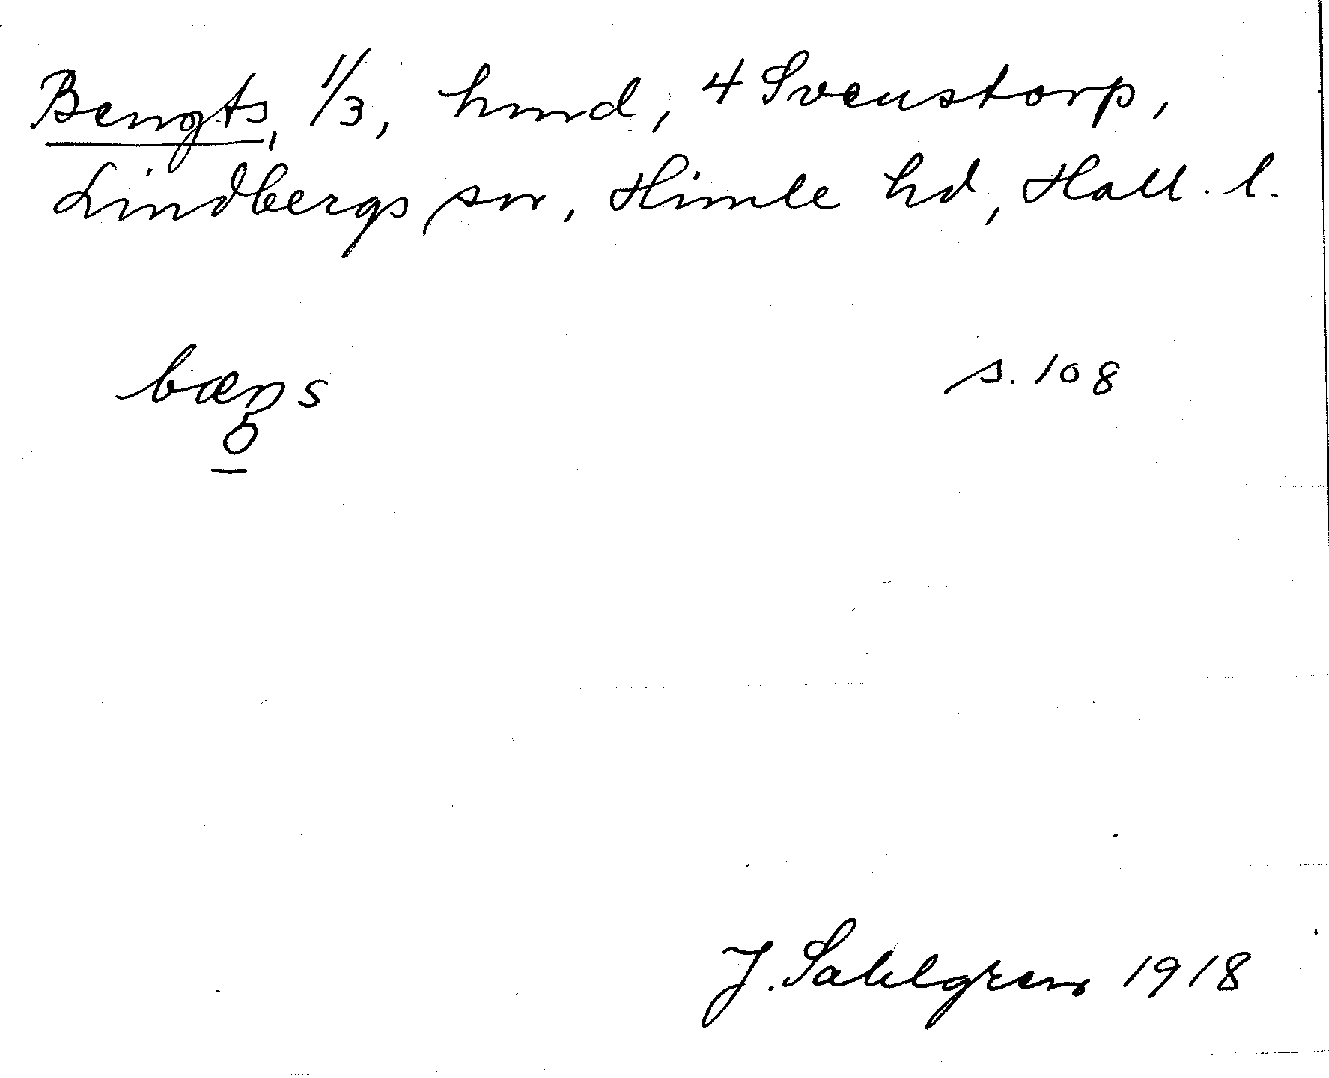 Bengts, 1/3, hmd, 4 Svenstorp,
Lindbergs sn, Himle hd, Hall. l.
bæŋs s. 108
J. Sahlgren 1918